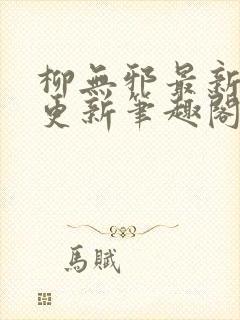 柳無邪最新
更新筆趣閣
馬賦